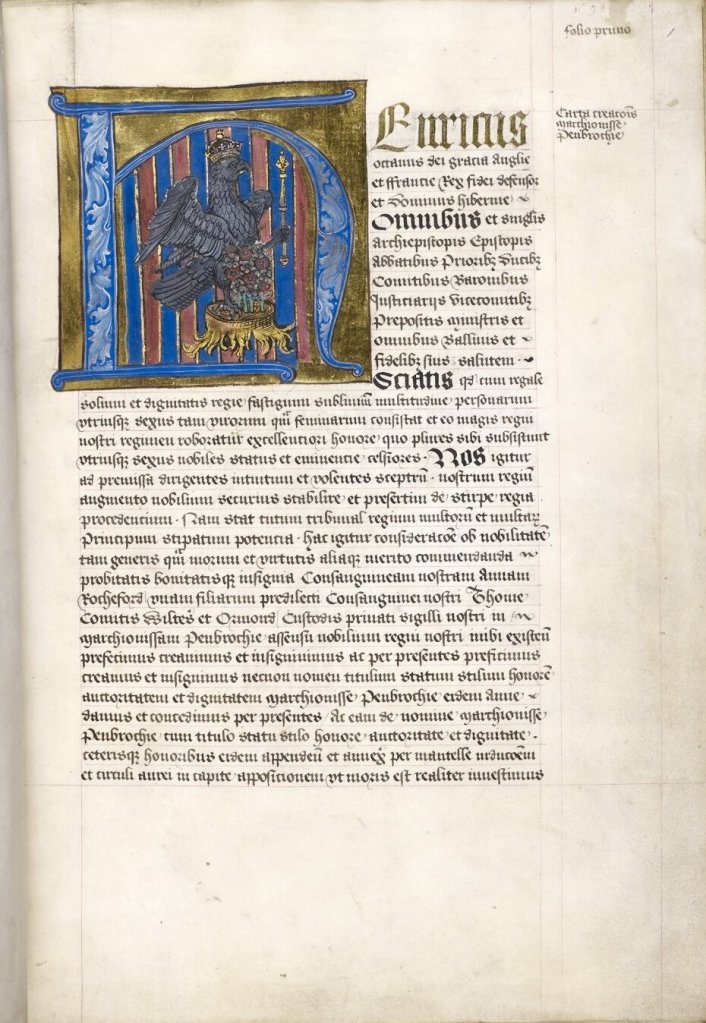 folio primo
1
Carta creacois
Marchionisse
Penbrochie
HEnricus
octauus dei gracia Anglie
et ffrancie Rex fidei defensor
et Dominus hibernie
Omnibus et singlis
Archiepiscopis Episcopis
Abbatibus Prioribꝫ Ducibꝫ
Comitibus Baronibus
Justiciarijs Vicecomitibꝫ
Prepositis Ministris et
omnibus Balliuis et
fidelibꝫ suis salutem
Sciatis qd cum regale
solium et dignitatis regie fastigium sublimiū multitudine personarum
vtriusqꝫ sexus tam virorum qm̄ feminarum consistat et eo magis regni
nostri regimen roboratur excellentiori honore quo plures sibi subsistunt
vtriusqꝫ sexus nobiles status et eminentie celsiores. Nos igitur
ad premissa dirigentes intuitum et volentes sceptrū nostrum regiū
augmento nobilium securius stabilire et presertim de stirpe regia
procedencium. Nam stat tutum tribunal regium multorū et multaꝝ
Principum stipatum potencia. hac igitur consideracōe ob nobilitatē
tam generis qm̄ morum et virtutis aliaqꝫ merito commendanda
probitatis bonitatisqꝫ insignia Consanguineam nostram Annam
Rocheford vnam filiarum predilecti Consanguinei nostri Thome
Comitis Wiltes et Ormond Custodis priuati sigilli nostri in
Marchionissam Penbrochie assensu nobilium regni nostri nibi existen̄
prefecimus creauimus et insigniuimus ac per presentes preficimus
creamus et insignimus necnon nomen titulum statum stilum honorē
auctoritatem et dignitatem Marchionisse Penbrochie eidem Anne
damus et concedimus per presentes Ac eam de nomine Marchionisse
Penbrochie cum titulo statu stilo honore auctoritate et dignitate.
ceterisqꝫ honoribus eidem appenden̄ et annex̄ per mantelle inducōem
et circuli aurei in capite apposicionem vt moris est realiter inuestimus